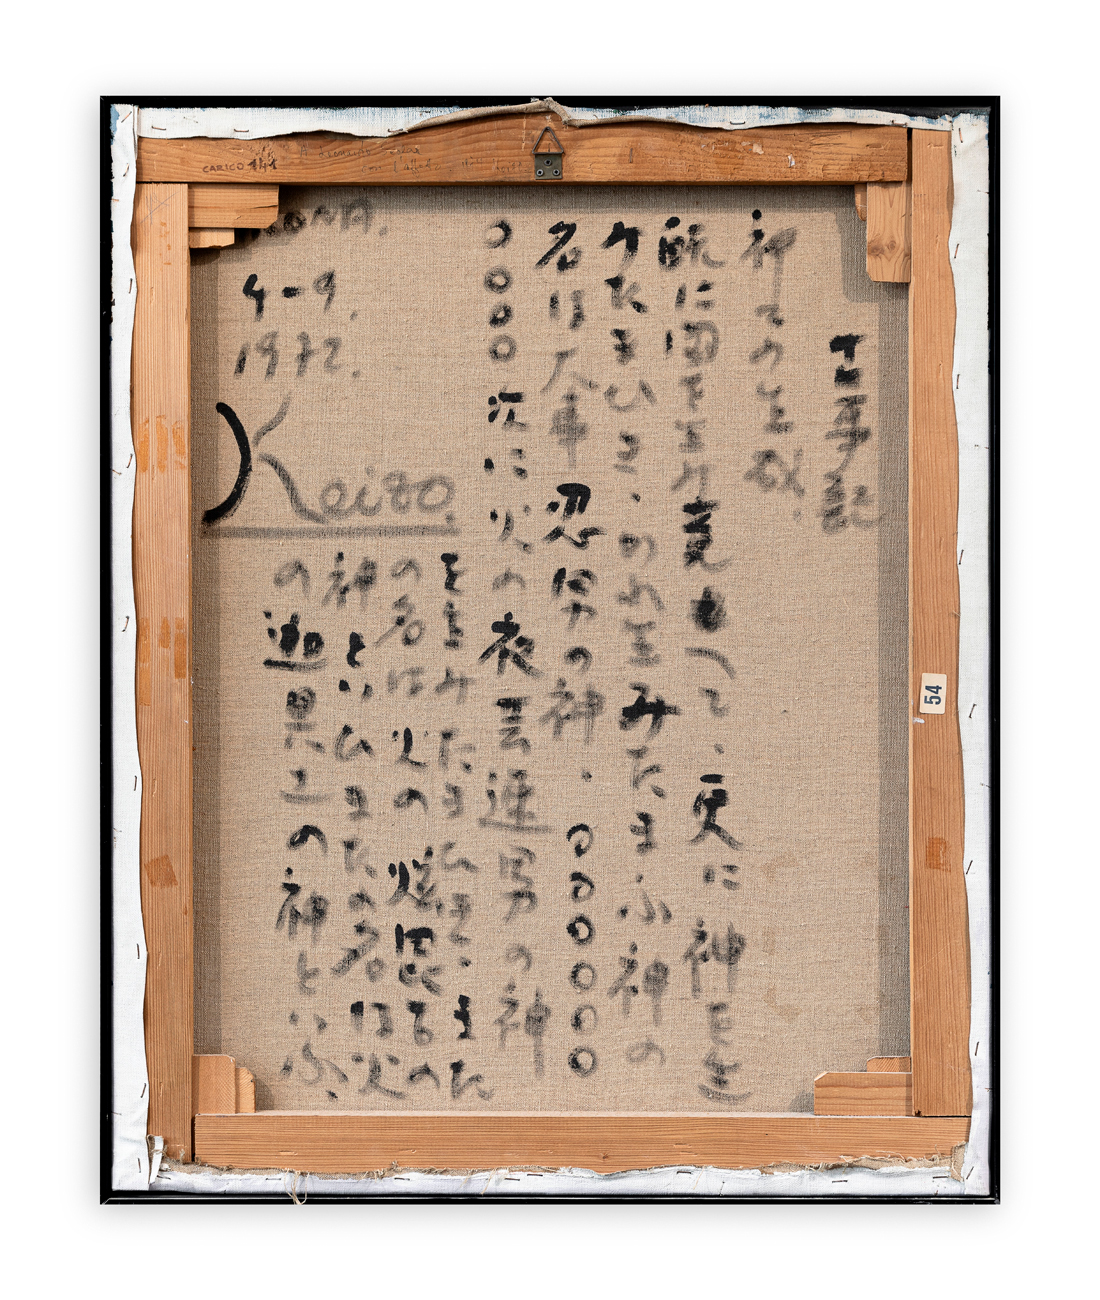 古事記
神々の生成
既に国を生み竟おって、更に神を生
みたまひき、かれ生みたまふ神の
名は大事忍男の神、〇〇〇〇〇〇
〇〇〇〇次に火の夜芸速男の神
を生みたまひき、また
の名は火の炫毘古の
神といひまたの名は火
の迦具土の神といふ、
4-9.
1972.
Keizo.
CARICO 441
54